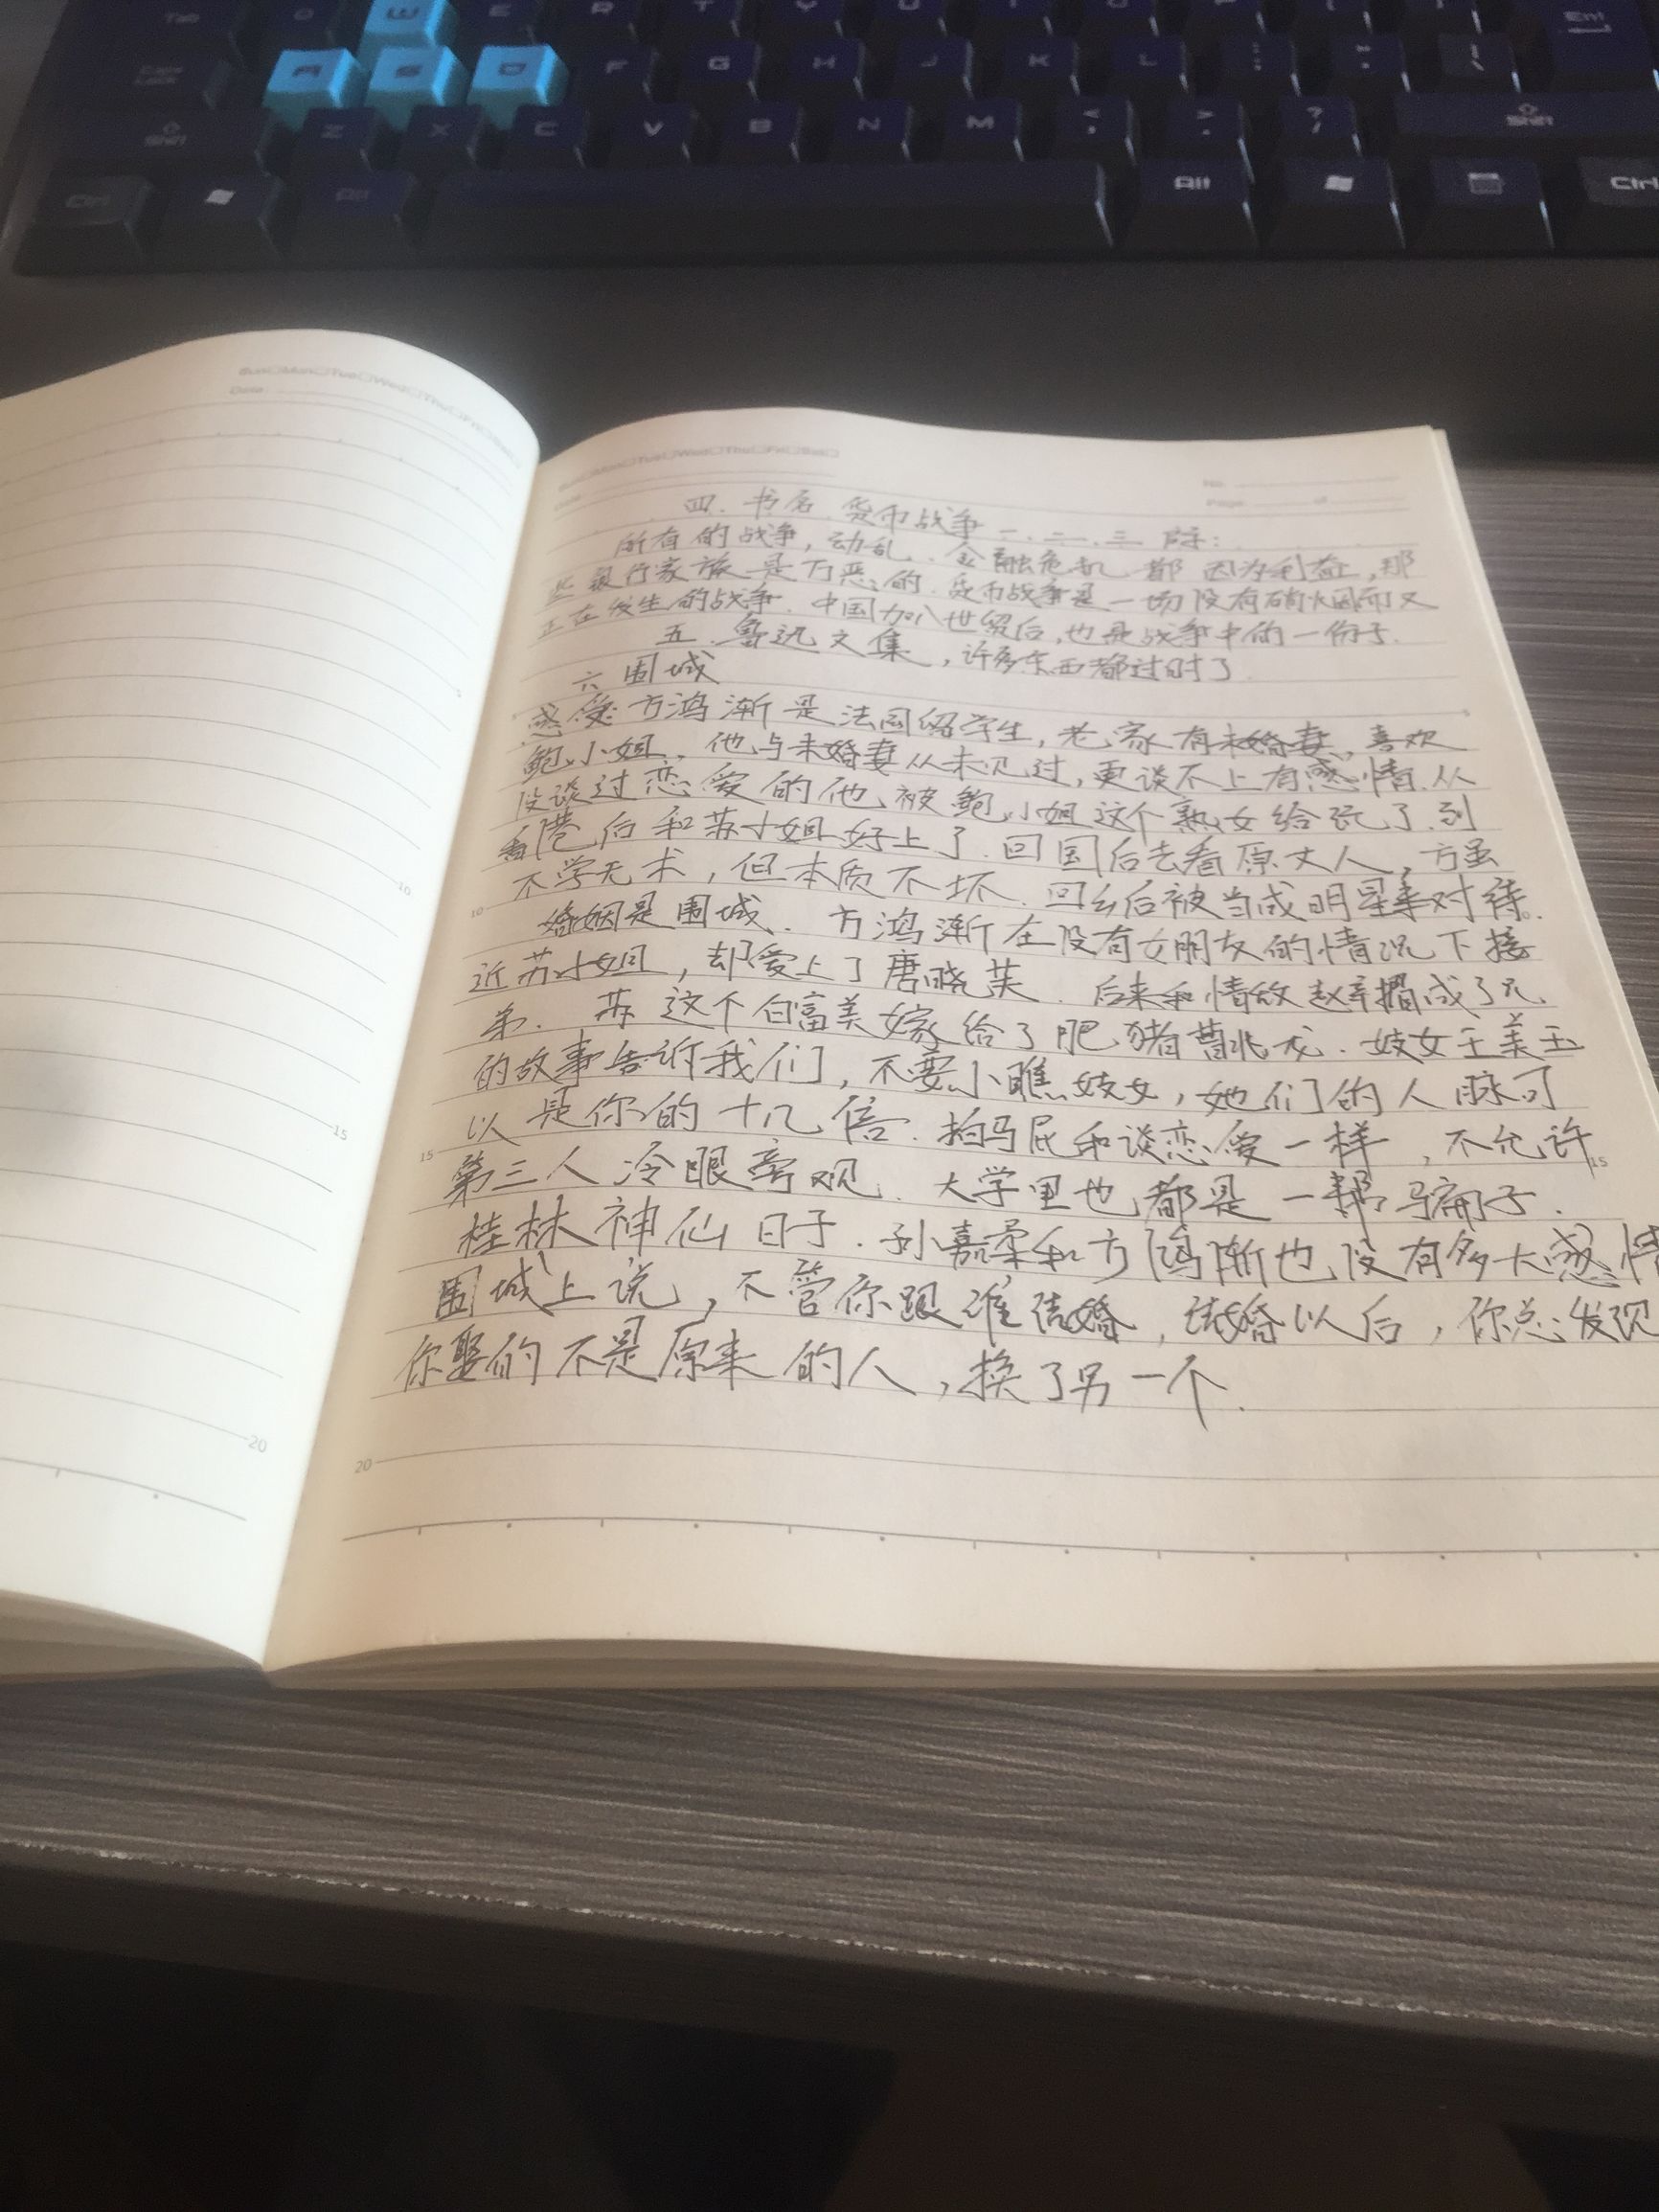 Tab Q W E R T Y U I O P { } Ent
Caps Lock A S D F G H J K L : ; " ' | \
Shift Z X C V B N M < , > . ? / Shift
Ctrl Alt Alt Ctrl
Sun□Mon□Tue□Wed□Thu□Fri□Sat□
Date
Mon□Tue□Wed□Thu□Fri□Sat□
No.
Page of
四.书名.货币战争一.二.三
所有的战争,动乱.金融危机都因为利益,那
些银行家族是万恶的.货币战争是一场没有硝火因而又
正在发生的战争.中国加入世贸后,也是战争中的一份子.
五.鲁迅文集,许多东西都过时了.
六 围城
感受 方鸿渐是法国留学生,老家有未婚妻,喜欢
鲍小姐,他与未婚妻从未见过,更谈不上有感情.从
没谈过恋爱的他被鲍小姐这个熟女给玩了.到
香港后和苏小姐好上了.回国后去看原丈人,方虽
不学无术,但本质不坏.回乡后被当成明星来对待.
婚姻是围城.方鸿渐在没有女朋友的情况下接
近苏小姐,却爱上了唐晓芙.后来和情敌赵辛楣成了兄
弟.苏这个白富美嫁给了肥猪曹兆龙.妓女王美玉
的故事告诉我们,不要小瞧妓女,她们的人脉可
以是你的十几倍.拍马屁和谈恋爱一样,不允许
第三人冷眼旁观.大学里也都是一帮骗子.
桂林神仙日子.孙嘉柔和方鸿渐也没有多大感情
围城上说,不管你跟谁结婚,结婚以后,你总发现
你娶的不是原来的人,换了另一个.
10
15
20
10
15
15
20